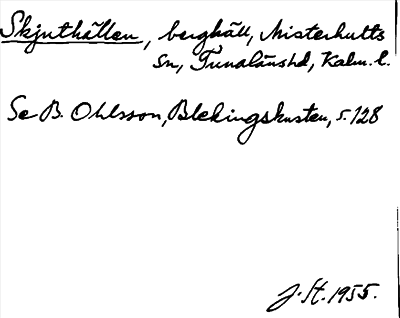 Skjuthällen, berghäll, Misterhults
sn, Tunalänshd, Kalm. l.
Se B. Ohlsson, Blekingskusten, s. 128
J. St. 1955.